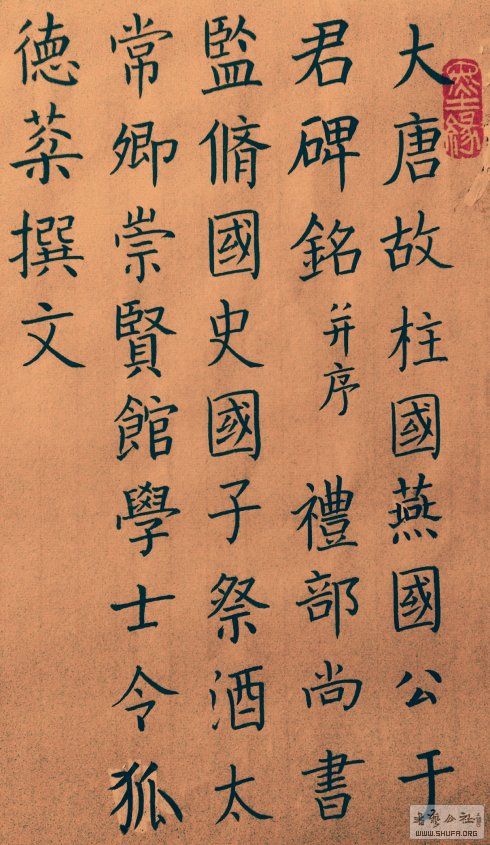 大唐故柱國燕國公于
君碑銘 并序 禮部尚書
監脩國史國子祭酒太
常卿崇賢館學士令狐
德棻撰文
书艺公社
WWW.SHUFA.ORG